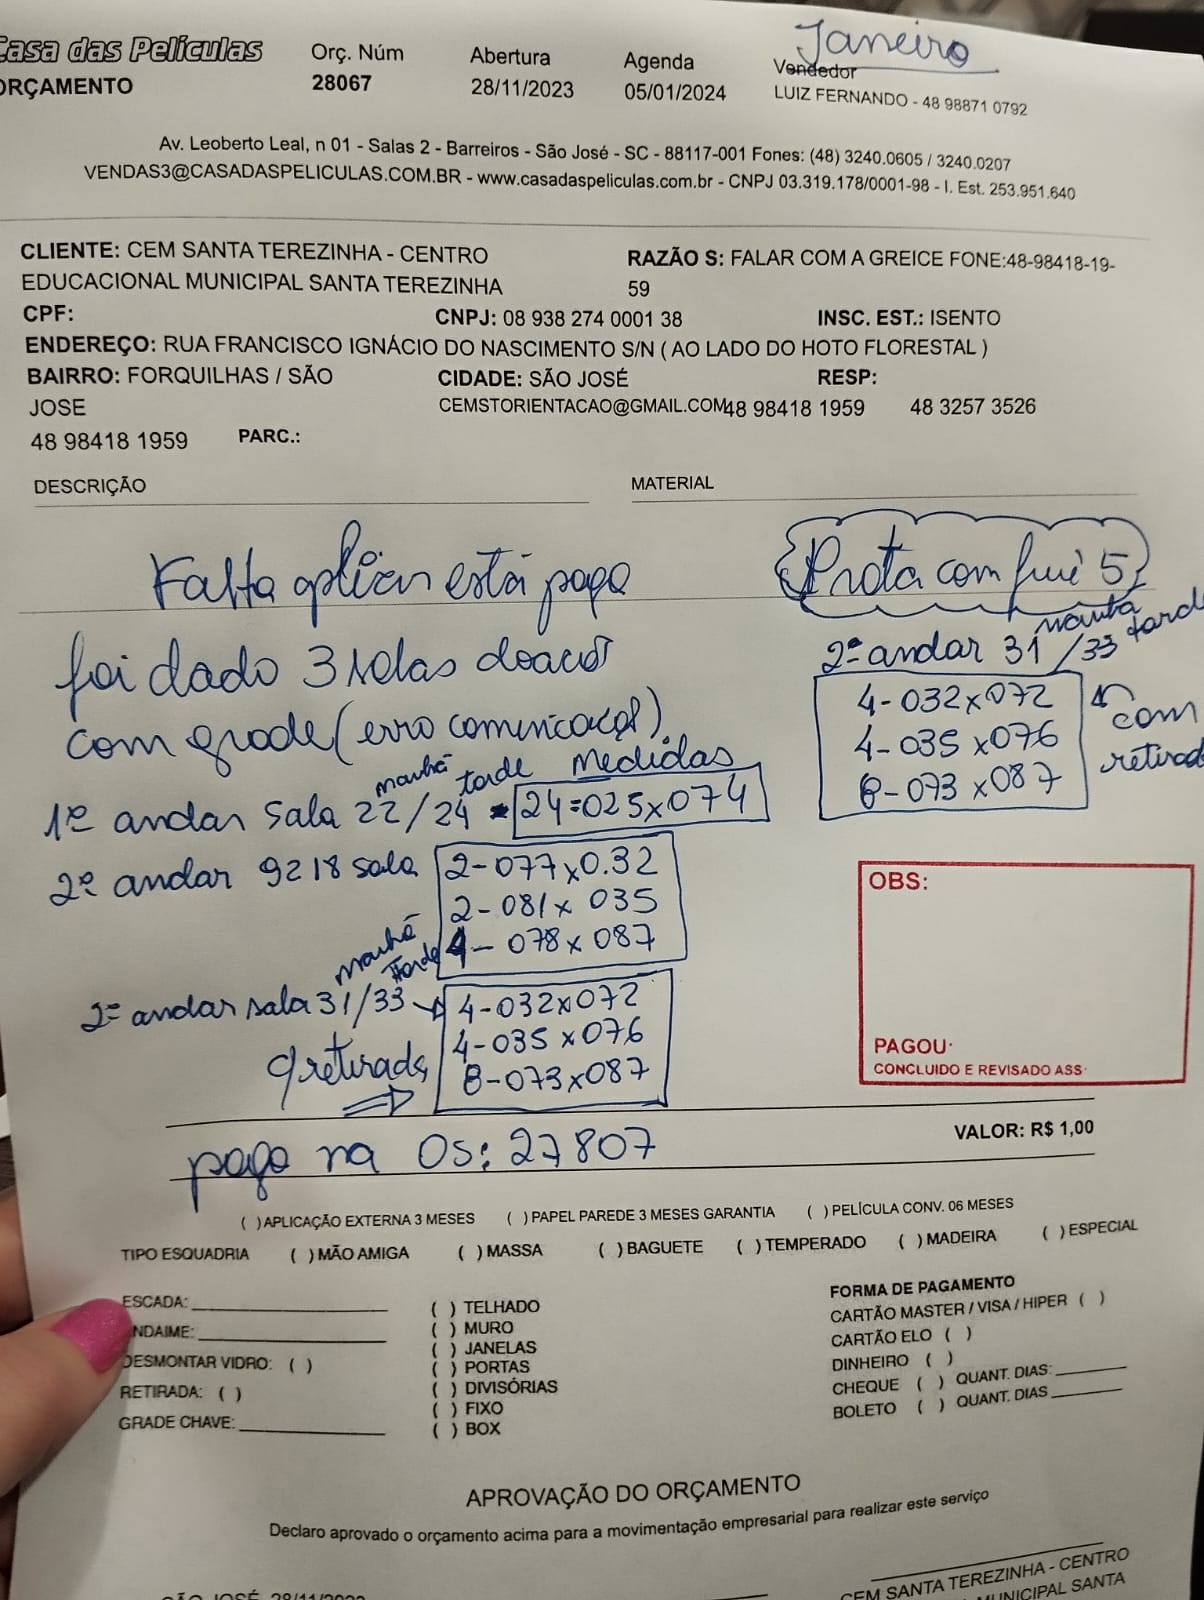 Casa das Películas
ORÇAMENTO
Orç. Núm
28067
Abertura
28/11/2023
Agenda
05/01/2024
Janeiro
Vendedor
LUIZ FERNANDO - 48 98871 0792
Av. Leoberto Leal, n 01 - Salas 2 - Barreiros - São José - SC - 88117-001 Fones: (48) 3240.0605 / 3240.0207
VENDAS3@CASADASPELICULAS.COM.BR - www.casadaspeliculas.com.br - CNPJ 03.319.178/0001-98 - I. Est. 253.951.640
CLIENTE: CEM SANTA TEREZINHA - CENTRO
EDUCACIONAL MUNICIPAL SANTA TEREZINHA
RAZÃO S: FALAR COM A GREICE FONE:48-98418-19-
59
CPF:
CNPJ: 08 938 274 0001 38
INSC. EST.: ISENTO
ENDEREÇO: RUA FRANCISCO IGNÁCIO DO NASCIMENTO S/N ( AO LADO DO HOTO FLORESTAL )
BAIRRO: FORQUILHAS / SÃO
JOSE
CIDADE: SÃO JOSÉ
RESP:
CEMSTORIENTACAO@GMAIL.COM48 98418 1959
48 3257 3526
48 98418 1959
PARC.:
DESCRIÇÃO
MATERIAL
Falta aplicar está pago
Prata com fumê 5
foi dado 3 salas
com grade (erro comunicação).
manhã tarde
2º andar 31/33
4-032x072
4-035x076
8-073x087
com
retirada
manhã tarde Medidas
1º andar sala 22/24 24=025x074
2º andar 9218 sala
2-077x0.32
2-081x035
4-078x087
manhã
tarde
2º andar sala 31/33
4-032x072
4-035x076
8-073x087
retirada
pago na Os: 27807
OBS:
PAGOU:
CONCLUIDO E REVISADO ASS:
VALOR: R$ 1,00
( )APLICAÇÃO EXTERNA 3 MESES ( )PAPEL PAREDE 3 MESES GARANTIA ( )PELÍCULA CONV. 06 MESES
TIPO ESQUADRIA ( )MÃO AMIGA ( )MASSA ( )BAGUETE ( )TEMPERADO ( )MADEIRA ( )ESPECIAL
ESCADA:
NDAIME:
DESMONTAR VIDRO: ( )
RETIRADA: ( )
GRADE CHAVE:
( ) TELHADO
( ) MURO
( ) JANELAS
( ) PORTAS
( ) DIVISÓRIAS
( ) FIXO
( ) BOX
FORMA DE PAGAMENTO
CARTÃO MASTER / VISA / HIPER ( )
CARTÃO ELO ( )
DINHEIRO ( )
CHEQUE ( ) QUANT. DIAS:
BOLETO ( ) QUANT. DIAS
APROVAÇÃO DO ORÇAMENTO
Declaro aprovado o orçamento acima para a movimentação empresarial para realizar este serviço
CEM SANTA TEREZINHA - CENTRO
MUNICIPAL SANTA